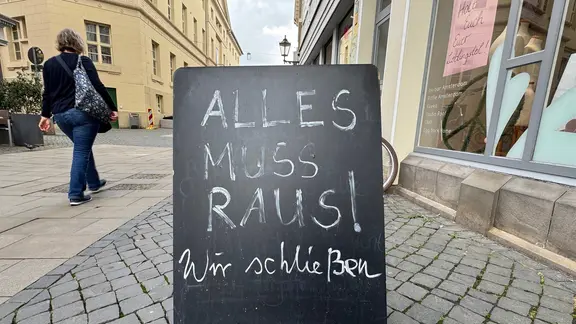 ALLES
MUSS
RAUS!
Wir schließen